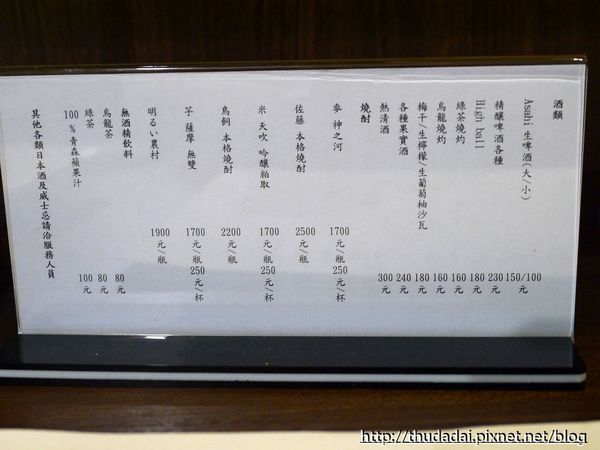 酒類
Asahi 生啤酒(大/小) 150/100元
精釀啤酒各種 230元
High ball 180元
綠茶燒灼 160元
烏龍燒灼 160元
梅干、生檸檬/生葡萄柚沙瓦 180元
各種果實酒 240元
熱清酒 300元
燒酎
麥 神之河 1700元/瓶 250元/杯
佐藤 本格燒酎 2500元/瓶
米 天吹 吟釀粕取 1700元/瓶 250元/杯
鳥飼 本格燒酎 2200元/瓶
芋 薩摩 無雙 1700元/瓶 250元/杯
明るい農村 1900元/瓶
無酒精飲料 80元
烏龍茶 80元
綠茶 100元
100%青森蘋果汁
其他各類日本酒及威士忌請洽服務人員
http://thudadai.pixnet.net/blog